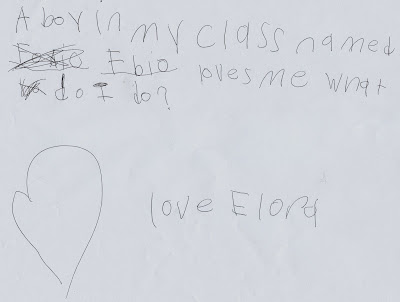 A boy in my class named
Ebio loves me wnat
do I do?
love Elora